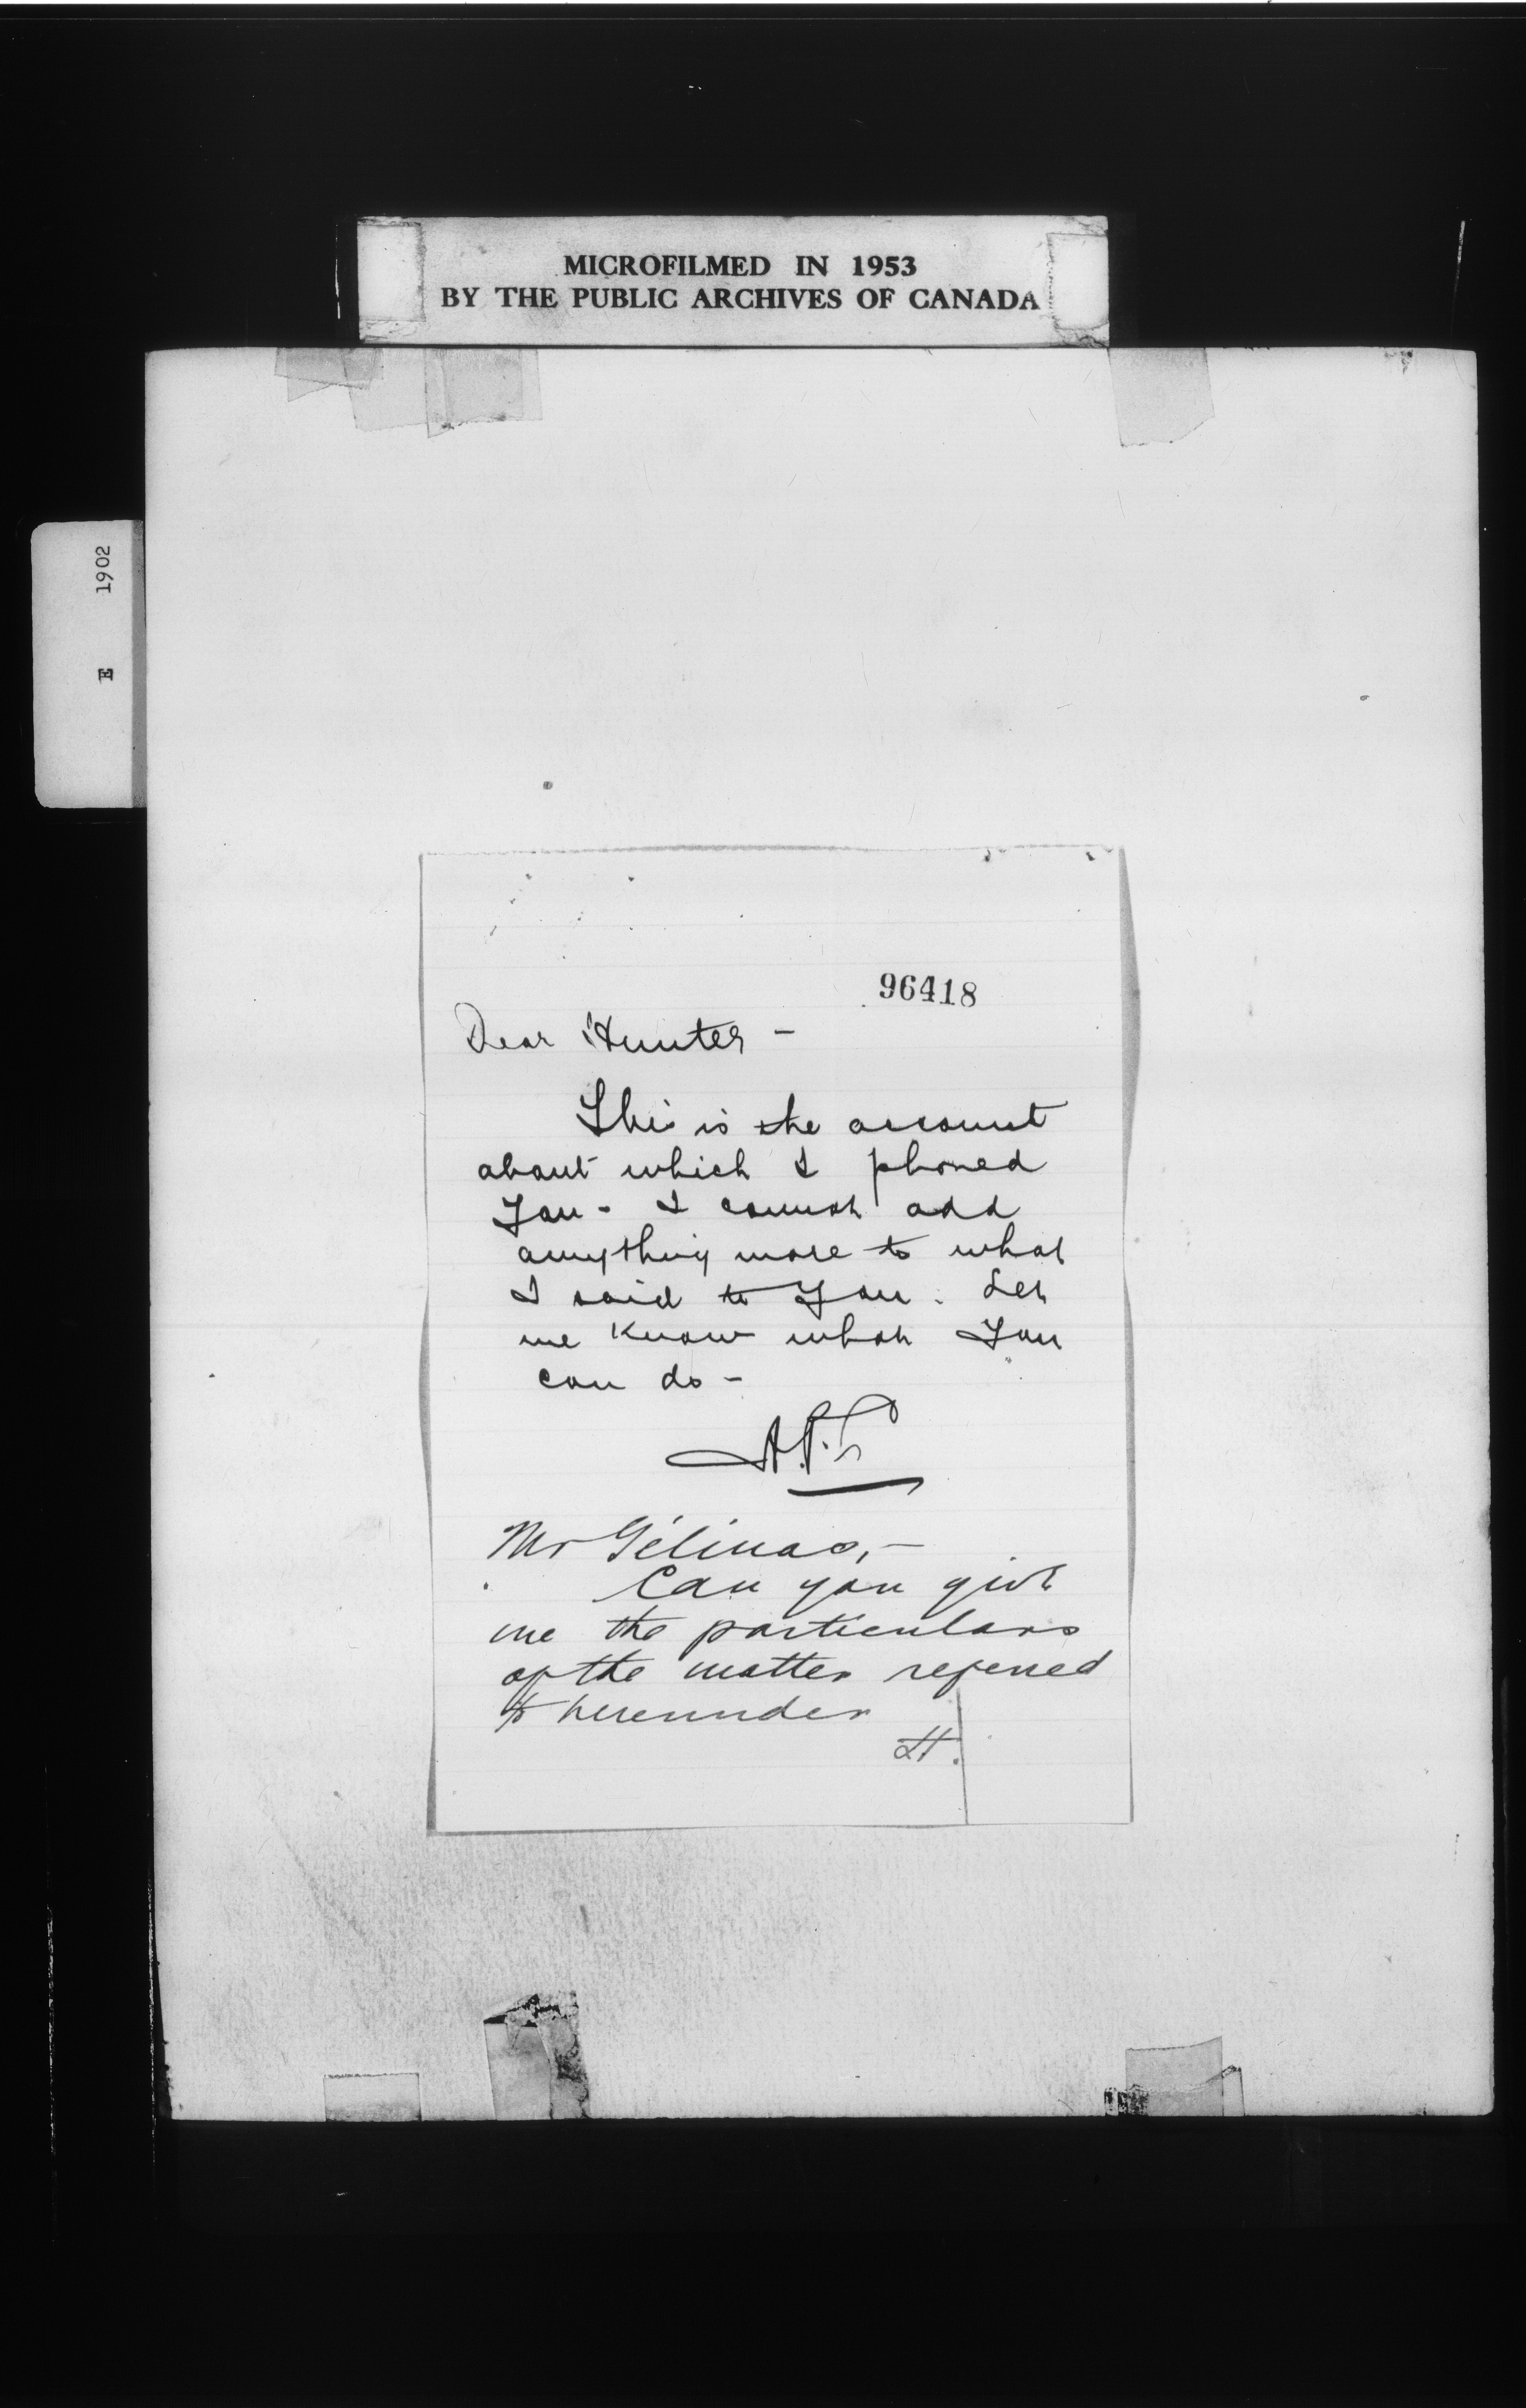 MICROFILMED IN 1953
BY THE PUBLIC ARCHIVES OF CANADA
E 1902
96418
Dear Hunter -
This is the account
about which I phoned
You - I cannot add
anything more to what
I said to You. Let
me Know what You
can do -
Mr Gélinas, -
Can you give
me the particulars
of the matter referred
to hereunder
H.